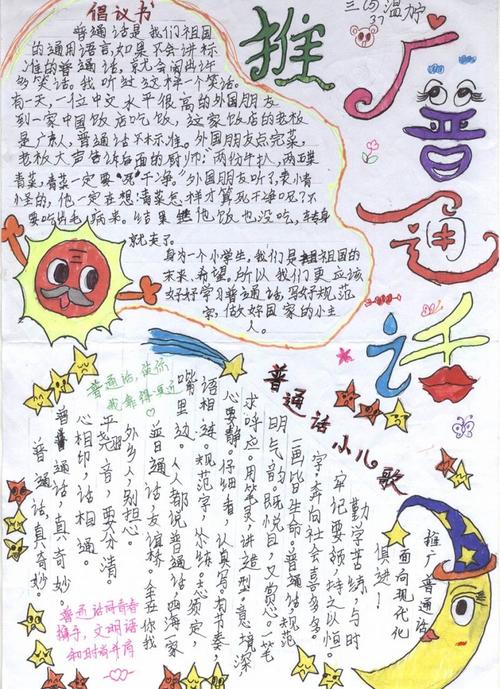 倡议书
三(5)温柠
37
推广普通话
普通话是我们祖国
的通用语言,如果不会讲标
准的普通话，就会闹出许
多笑话。我听过这样一个笑话。
有一天，一位中文水平很高的外国朋友
到一家中国饭店吃饭，这家饭店的老板
是广东人，普通话不标准。外国朋友点完菜，
老板大声告诉后面的厨师:“两份牛扒，两碟
青菜，青菜一定要“死”干净。”外国朋友听了，
他一定在想:青菜怎样才算死干净呢?不
要吃出毛病来。结果他饭也没吃，转身
就走了。
身为一个小学生，我们是祖国的
未来、希望。所以我们更应该
好好学习普通话，写好规范
字，做好国家的小主
人。
普通话小儿歌
普通话，真奇妙。
普通话，真奇妙。
心相印，话相通。
平翘音，要分清
外乡人，别担心
普通话，友谊桥。全在你我
嘴里边。人人都说普通话，四海一家
语相连。规范字，人人练。必须定，
心要静。仔细看，认真写。有节奏
求呼应，用笔灵，讲造型，意境深
明气韵，既悦目，又赏心。一笔
画皆生命。普通话，规范
字，奔向社会喜多多。
牢记要领持之以恒
勤学苦练，与时
俱进！
推广普通话
面向现代化
普通话，使你
我靠得更近
普通话同青春
携手，文明语
和时尚并肩